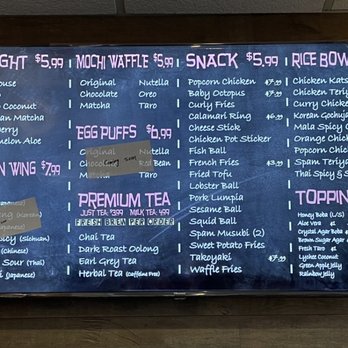 GHT $5.99
ouse
Coconut
an Matcha
berry
melon Aloe
N WING $7.99
(Korean)
(Japanese)
icy (Sichuan)
(Chinese)
Sour (Thai)
(Japanese)
MOCHI WAFFLE $5.99
Original Nutella
Chocolate Oreo
Matcha Taro
EGG PUFFS $6.99
Original Nutella
Chocolate Red Bean
Matcha Taro
Coming Soon
PREMIUM TEA
JUST TEA: $3.99 MILK TEA: 4.99
FRESH BREW PER ORDER
Chai Tea
Dark Roast Oolong
Earl Grey Tea
Herbal Tea (Caffeine Free)
SNACK $5.99
Popcorn Chicken $7.99
Baby Octopus $7.99
Curly Fries
Calamari Ring $6.99
Cheese Stick
Chicken Pot Sticker
Fish Ball
French Fries $3.99
Fried Tofu
Lobster Ball
Pork Lumpia
Sesame Ball
Squid Ball
Spam Musubi (2)
Sweet Potato Fries
Takoyaki $7.99
Waffle Fries
RICE BOW
Chicken Kats
Chicken Teriy
Curry Chicken
Korean Gochuja
Mala Spicy C
Orange Chicke
Popcorn Chick
Spam Teriya
Thai Spicy & S
TOPPIN
Honey Boba (L/S)
Aloe Vera $1
Crystal Agar Boba
Brown Sugar Agar
Fresh Taro $1
Lychee Coconut
Green Apple Jelly
Rainbow Jelly